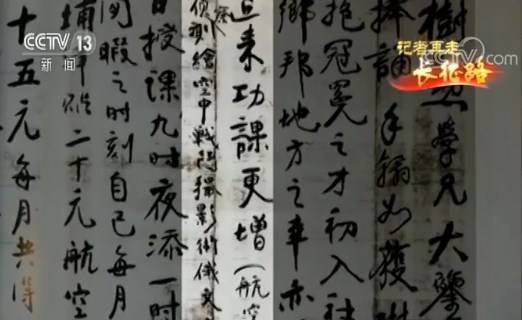 CCTV 13
新闻
记者再走
长征路
CCTV.com
學兄大鑒
捧誦手翰如獲
抱冠冕之才初入社
鄉邦地方之事亦
近來功課更增(航空
偵察測繪空中戰鬥攝影術俄文
日授課九時夜添一時
閑暇之時刻自己每月
埔二十元航空
十五元每月共得